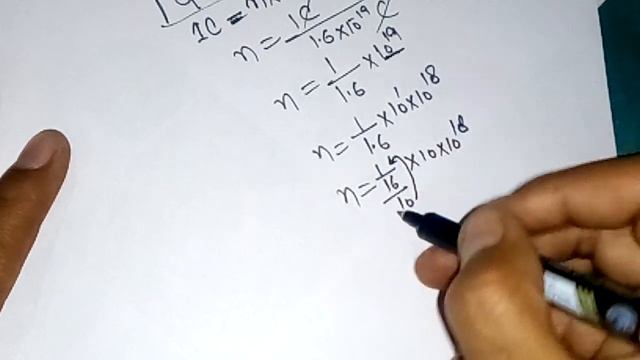 1C = n
n = 1C / 1.6 × 10^19 C
n = 1 / 1.6 × 10^19
n = 1 / 1.6 × 10^1 × 10^18
n = 1 / 16 / 10 × 10 × 10^18